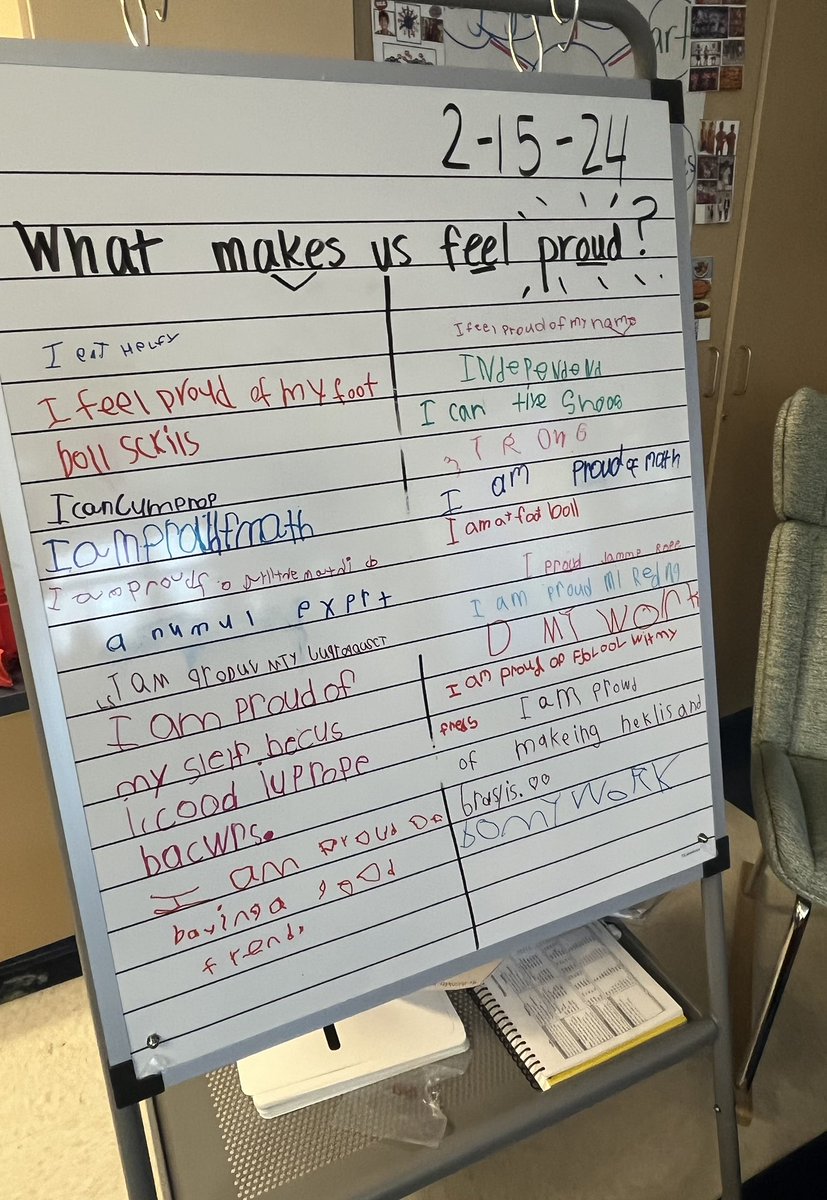 2-15-24
What makes us feel proud?
I eat Helfy
I feel proud of my foot
boll sckils
I can Cumprop
I am prouhfmath
I am proud fo
a numul exprt
I am gropuv MTY
I am proud of
my slelf becus
I cood juprope
bacwrs.
I am proud oo
baving a good
frend,
I feel Proud of my name
INdependend
I can tise Shoos
STRONG
I am Proud of math
I am at foot boll
I proud
I am proud MI Redng
D MY WORk
I am proud of Fblool witmy
freds I am proud
of makeing neklis and
braslis.
DO MY WORK